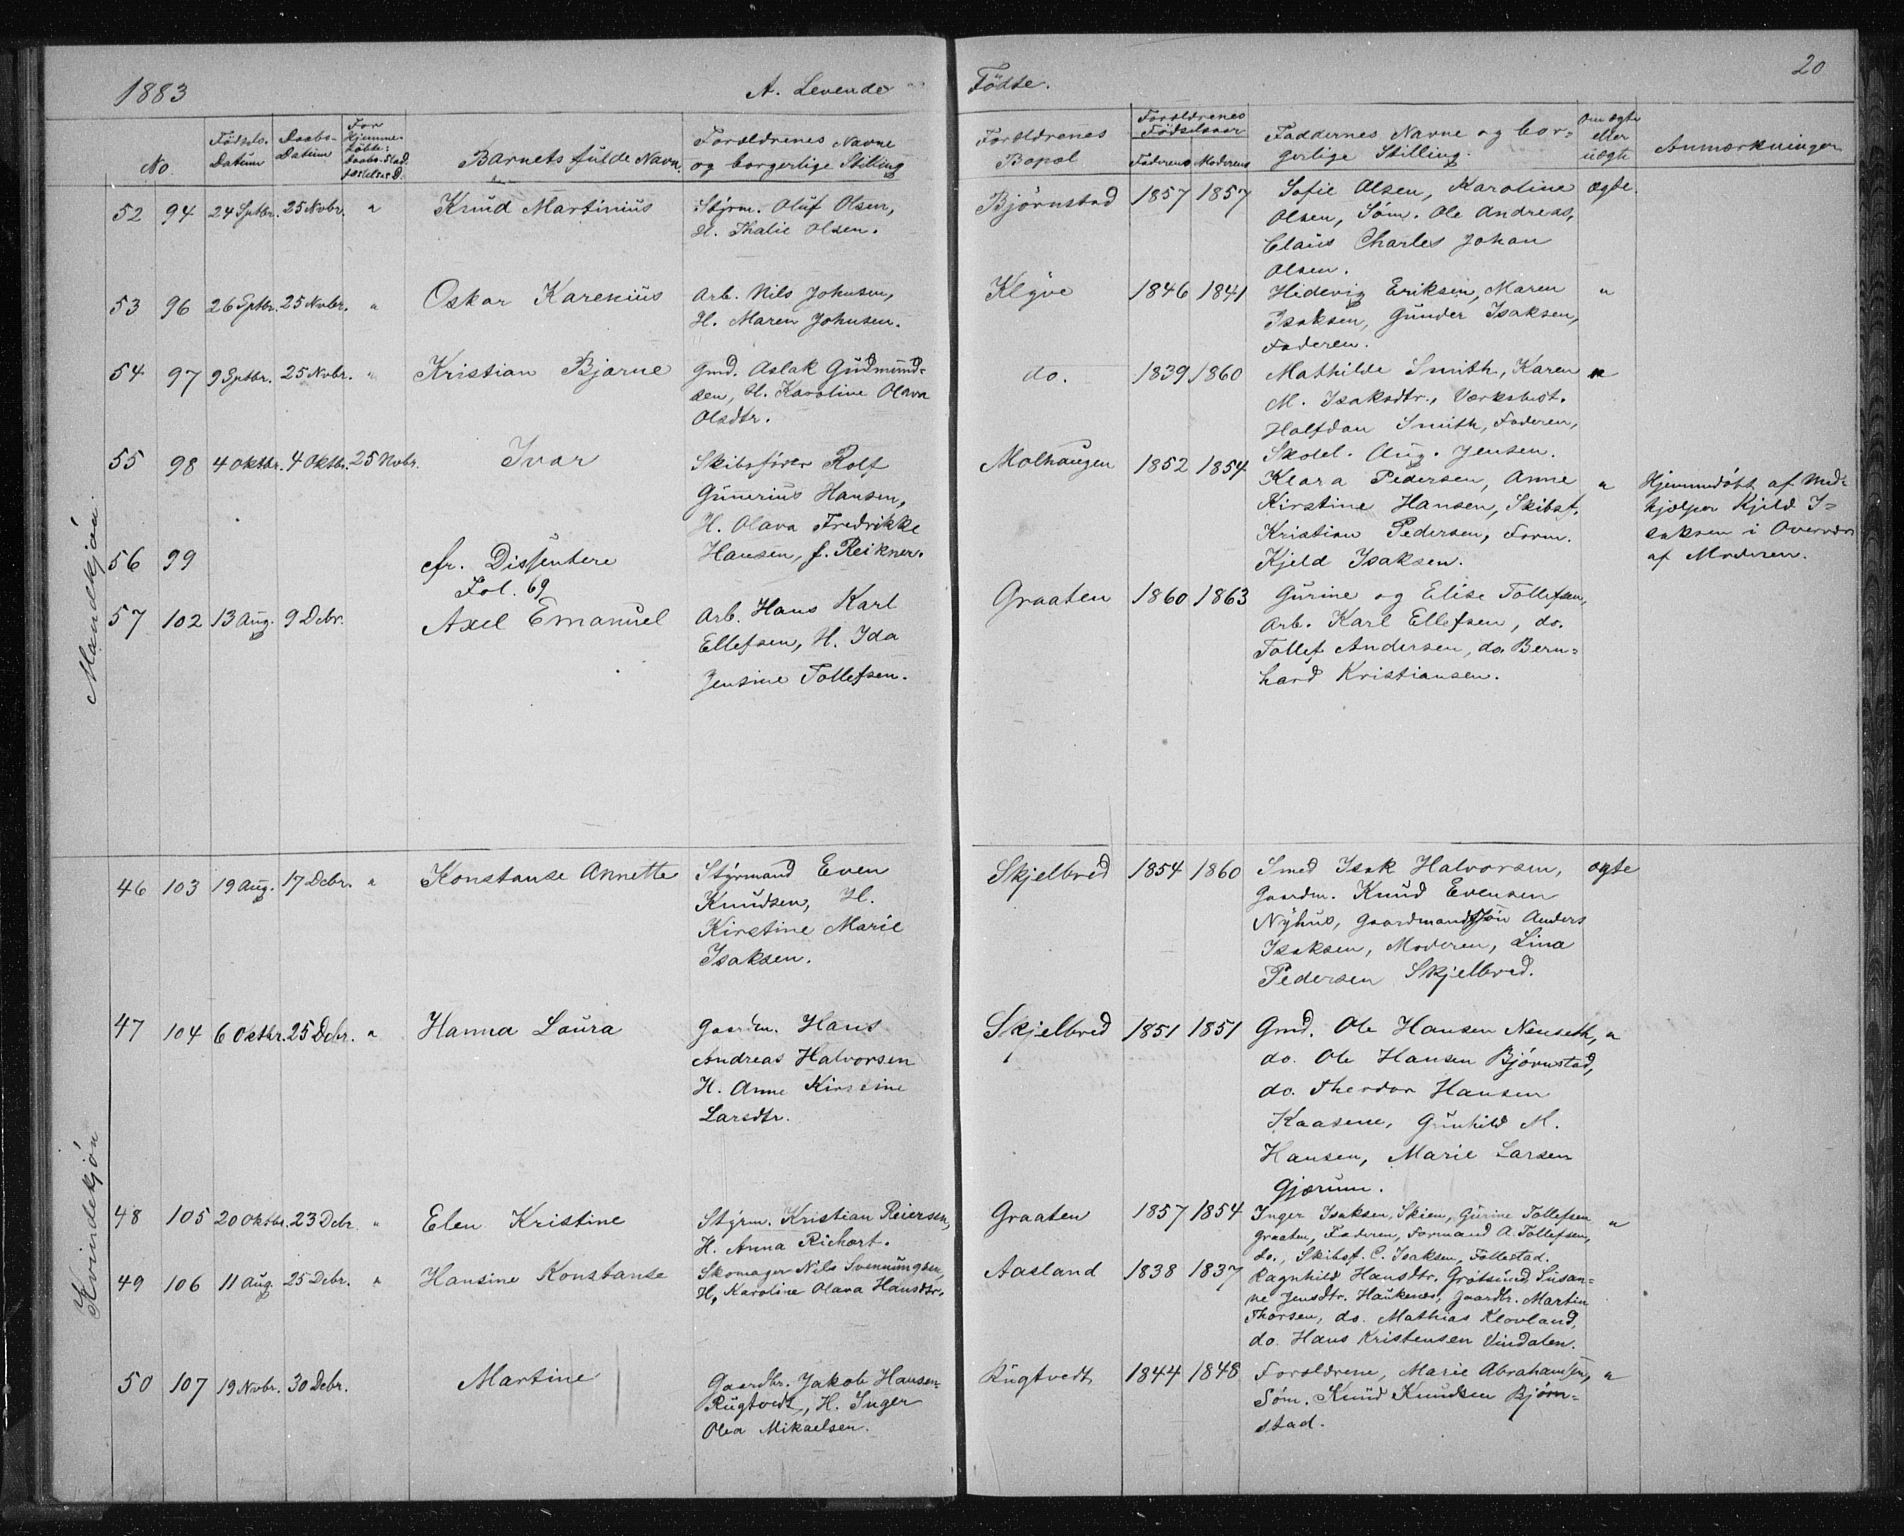 1883
A. Levende
Fødte.
20
No.
Fødsels-
Datum
Daabs-
Datum
For
Hjemme-
døbte:
Daabs-Stad-
fæstelses D.
Barnets fulde Navn.
Forældrenes Navne
og borgerlige Stilling
Forældrenes
Bopæl
Forældrenes
Fødselsaar
Faderens Moderens
Faddernes Navne og bor-
gerlige Stilling.
Om ægte
eller
uægte
Anmærkninger
Mandskjøn.
52 94 24 Septbr. 25 Novbr. "
Knud Martinius
Styrm. Oluf Olsen,
H. Thalie Olsen.
Bjørnstad 1857 1857
Sofie Olsen, Karoline
Olsen, Søm. Ole Andreas,
Claus Charles Johan
Olsen.
ægte.
53 96 26 Sptbr. 25 Novbr. "
Oskar Karenius
Arb. Nils Johnsen,
H. Maren Johnsen.
Klyve 1846 1841
Hidevig Eriksen, Maren
Isaksen, Gunder Isaksen,
Faderen.
"
54 97 9 Sptbr. 25 Novbr. "
Kristian Bjarne
Gmd. Aslak Gudmund-
sen, H. Karoline Olava
Olsdtr.
do. 1839 1860
Mathilde Smith, Karen
M. Isaksdtr., Værksbest.
Halfdan Smith, Faderen,
Skolel. Aug. Jensen.
"
55 98 4 Oktbr. 4 Oktbr. 25 Novbr.
Ivar
Skibsfører Rolf
Gunerius Hansen,
H. Olava Fredrikke
Hansen, f. Reikner.
Molhaugen 1852 1854
Klara Pedersen, Anne
Kirstine Hansen, Skibsf.
Kristian Pedersen, Form.
Kjeld Isaksen.
"
Hjemmedøbt af Med-
hjælper Kjeld I-
saksen i Overvær
af Moderen.
56 99
cfr. Dissentere
Fol. 69
57 102 13 Aug. 9 Debr.
Axel Emanuel
Arb. Hans Karl
Ellefsen, H. Ida
Jensine Tollefsen.
Graaten 1860 1863
Gurine og Elise Tollefsen,
Arb. Karl Ellefsen, do.
Tollef Andersen, do. Bern-
hard Kristiansen.
Kvindekjøn
46 103 19 Aug. 17 Debr. "
Konstanse Annette
Styrmand Even
Knudsen, H.
Kirstine Marie
Isaksen.
Skjelbred 1854 1860
Smed Isak Halvorsen,
Gaardm. Knud Evensen
Nyhus, Gaardmandssøn Anders
Isaksen, Moderen, Lina
Pedersen Skjelbred.
ægte
47 104 6 Oktbr. 25 Debr. "
Hanna Laura
Gaardm. Hans
Andreas Halvorsen
H. Anne Kirstine
Larsdtr.
Skjelbred 1851 1851
Gmd. Ole Hansen Nenseth,
do. Ole Hansen Bjørnstad,
do. Theodor Hansen
Kaasene, Gunhild M.
Hansen, Marie Larsen
Gjærum.
"
48 105 20 Oktbr. 23 Debr. "
Elen Kristine
Styrm. Kristian Reiersen,
H. Anna Richort.
Graaten 1857 1854
Inger Isaksen, Skien, Gurine Tollefsen
Graaten, Faderen, Formand A. Tollefsen,
do., Skibsf. C. Isaksen, Follestad.
"
49 106 11 Aug. 25 Debr. "
Hansine Konstanse
Skomager Nils Svennungsen,
H. Karoline Olava Hansdtr.
Aasland 1838 1837
Ragnhild Hansdtr. Grøtsund, Susan-
ne Jensdtr. Haukenes, Gaardbr. Martin
Thorsen, do. Mathias Klovland,
do. Hans Kristensen Vindalen.
50 107 19 Novbr. 30 Debr.
Martine
Gaardbr. Jakob Hansen
Rugtvedt, H. Inger
Olea Mikaelsen.
Rugtvedt 1844 1848
Forældrene, Marie Abrahamsen,
Søm. Knud Knudsen Bjørn-
stad.
"